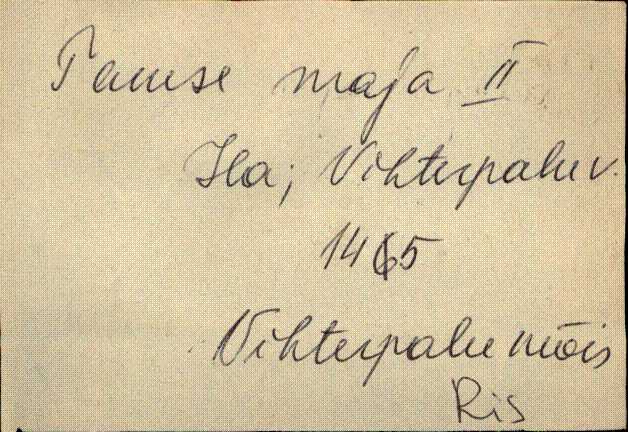 Tamse maja II
Ila; Vihterpalu v.
1465
Vihterpalu mõis
Ris